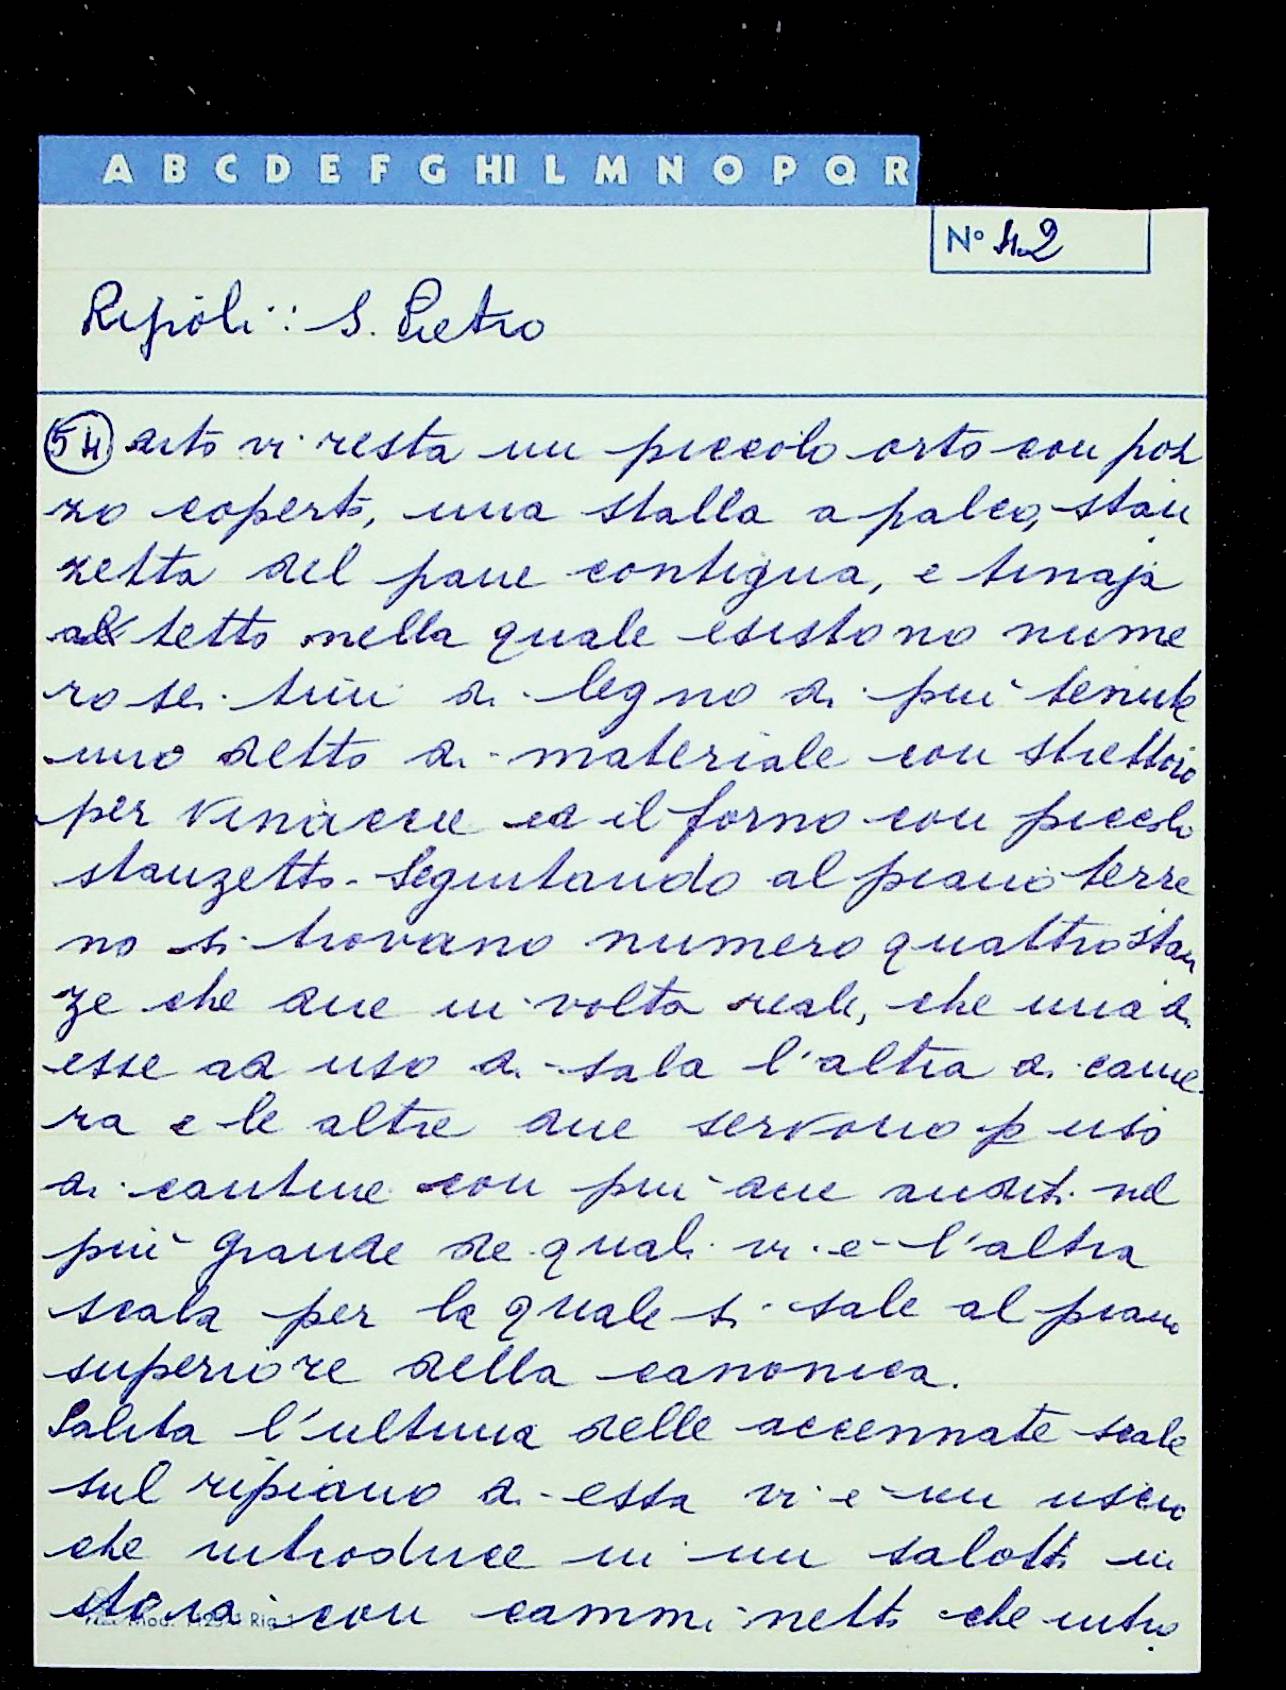 A B C D E F G HI L M N O P Q R
N° 42
Ripoli: S. Pietro
54 arto vi resta un piccolo orto con poz
zo coperto, una stalla a palco, stan
zetta del pane contigua, e tinaja
a tetto nella quale esistono nume
ro sei tini di legno di più tenute
uno detto di materiale con strettoio
per vinacce ed il forno con piccolo
stanzetto. Seguitando al piano terre
no si trovano numero quattro stan
ze che due in volta reale, che una di
esse ad uso di sala l'altra di came
ra e le altre due servono p uso
di cantine con più due anditi nel
più grande de quali vi è l'altra
scala per la quale si sale al piano
superiore della canonica.
Salita l'ultima delle accennate scale
sul ripiano di essa vi è un uscio
che introduce in un salotto in
stoia con camminetto che intro